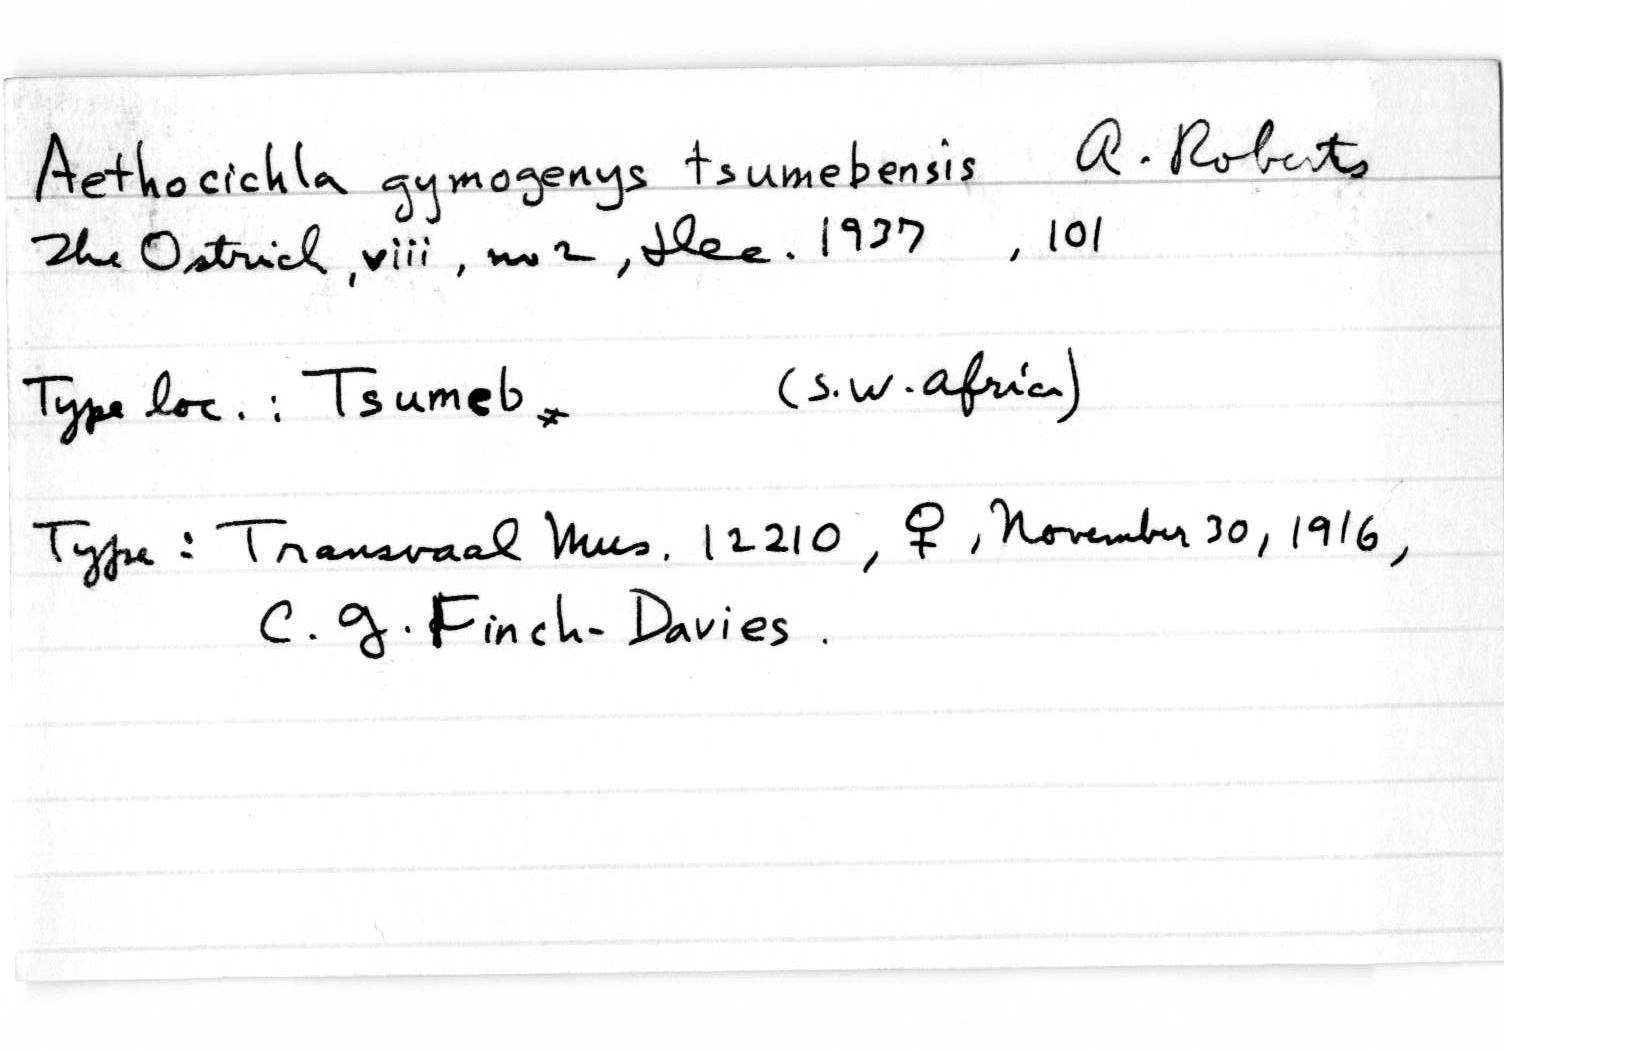 Aethocichla gymogenys tsumebensis A. Roberts
The Ostrich, viii, no 2, Dec. 1937 , 101
Type loc. : Tsumeb * (S.W. Africa)
Type : Transvaal Mus. 12210, ♀, November 30, 1916,
C. G. Finch-Davies.